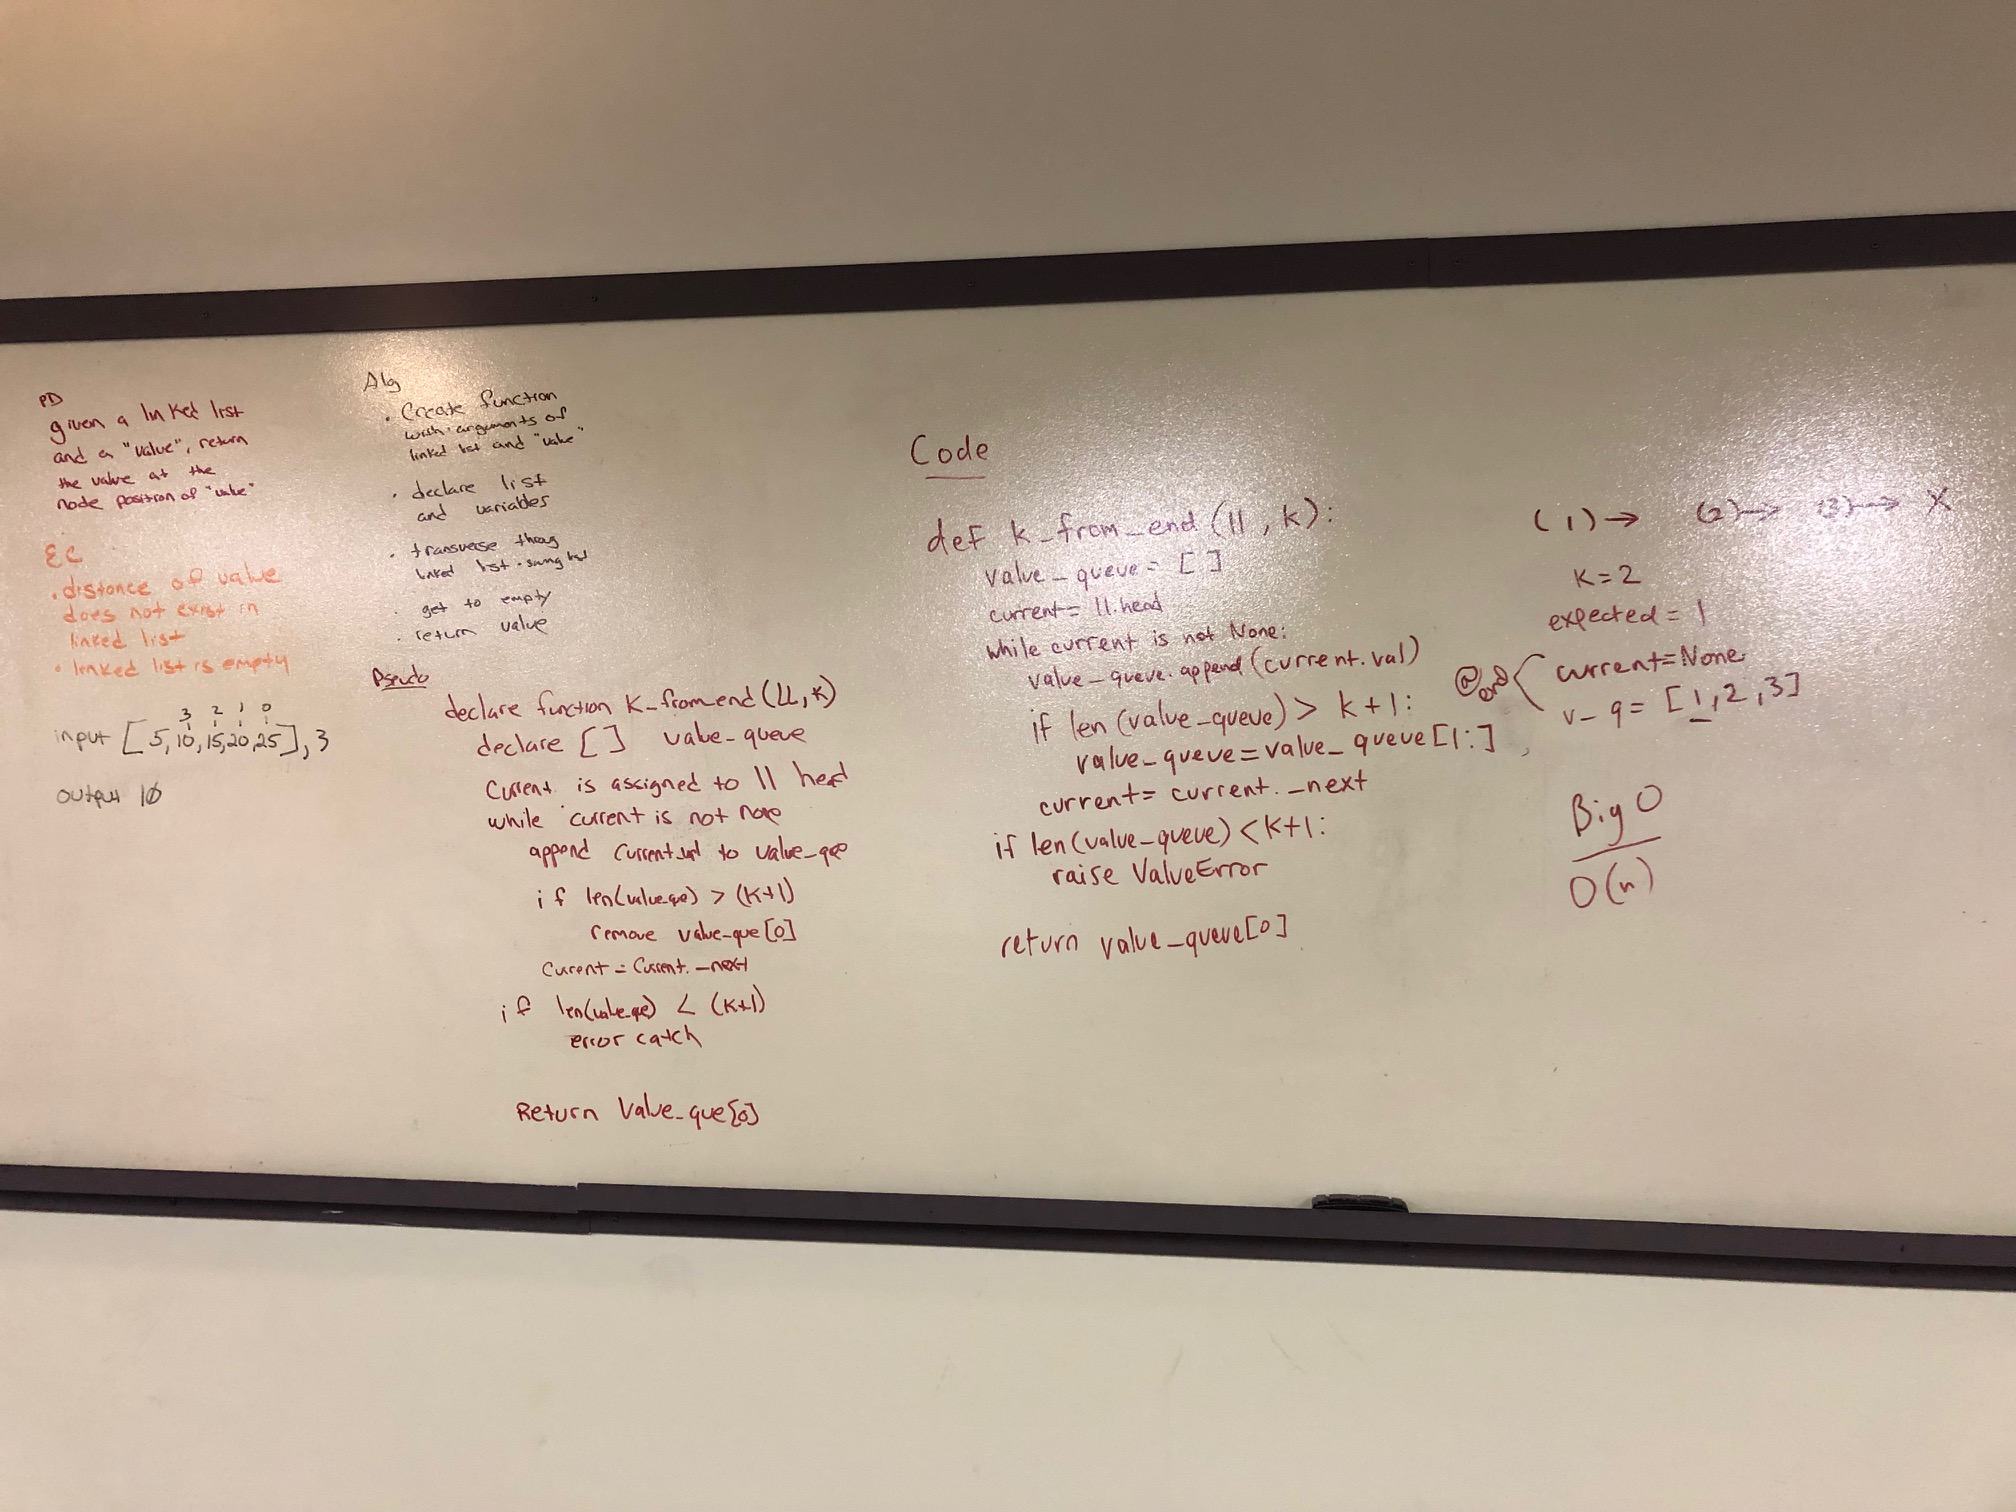 PD
given a linked list
and a "value", return
the value at the
node position of "value"
EC
• distance of value
does not exist in
linked list
• linked list is empty
3 2 1 0
input [5,10,15,20,25], 3
output 10
Alg
• Create function
with arguments of
linked list and "value"
• declare list
and variables
• transverse
linked list
• get to empty
• return value
Pseudo
declare function K_from_end (LL, K)
declare [ ] value_queue
Current is assigned to ll head
while current is not none
append current.val to value_que
if len(value_que) > (K+1)
remove value_que[0]
Curent = Current._next
if len(value_que) < (K+1)
error catch
Return Value_que[0]
Code
def k_from_end (ll, k):
value_queue = [ ]
current = ll.head
while current is not None:
value_queue.append(current.val)
if len(value_queue) > k+1:
value_queue = value_queue[1:]
current = current._next
if len(value_queue) < k+1:
raise ValueError
return value_queue[0]
(1) → (2) → (3) → X
K=2
expected = 1
@end { current=None
v_q = [1,2,3]
Big O
O(n)